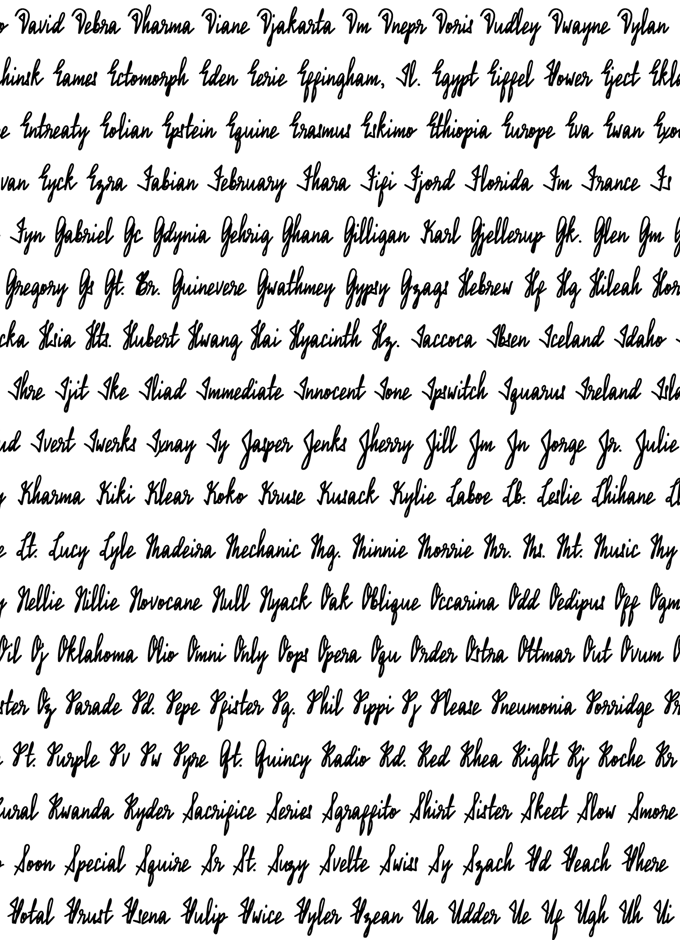 o David Debra Dharma Diane Djakarta Dm Dnepr Doris Dudley Dwayne Dylan
hinsk Eames Ectomorph Eden Eerie Effingham, Il. Egypt Eiffel Tower Eject Ekl
e Entreaty Eolian Epstein Equine Erasmus Eskimo Ethiopia Europe Eva Ewan Exo
van Eyck Ezra Fabian February Fhara Fifi Fjord Florida Fm France Fs
Fyn Gabriel Gc Gdynia Gehrig Ghana Gilligan Karl Gjellerup Gk. Glen Gm G
Gregory Gs Gt. Br. Guinevere Gwathmey Gypsy Gzags Hebrew Hf Hg Hileah Hor
cka Hsia Hts. Hubert Hwang Hai Hyacinth Hz. Iaccoca Ibsen Iceland Idaho
Ihre Ijit Ike Iliad Immediate Innocent Ione Ipswitch Iquarus Ireland Isl
ud Ivert Iwerks Ixnay Iy Jasper Jenks Jherry Jill Jm Jn Jorge Jr. Julie
y Kharma Kiki Klear Koko Kruse Kusack Kylie Laboe Lb. Leslie Lhihane Ll
e Lt. Lucy Lyle Madeira Mechanic Mg. Minnie Morrie Mr. Ms. Mt. Music My
y Nellie Nillie Novocane Null Nyack Oak Oblique Occarina Odd Oedipus Off Ogm
Oil Oj Oklahoma Olio Omni Only Oops Opera Oqu Order Ostra Ottmar Out Ovum O
ster Oz Parade Pd. Pepe Pfister Pg. Phil Pippi Pj Please Pneumonia Porridge Pr
Pt. Purple Pv Pw Pyre Qt. Quincy Radio Rd. Red Rhea Right Rj Roche Rr
Rural Rwanda Ryder Sacrifice Series Sgraffito Shirt Sister Skeet Slow Smore
o Soon Special Squire Sr St. Suzy Svelte Swiss Sy Szach Td Teach There
Total Trust Tsena Tulip Twice Tyler Tzean Ua Udder Ue Uf Ugh Uh Ui